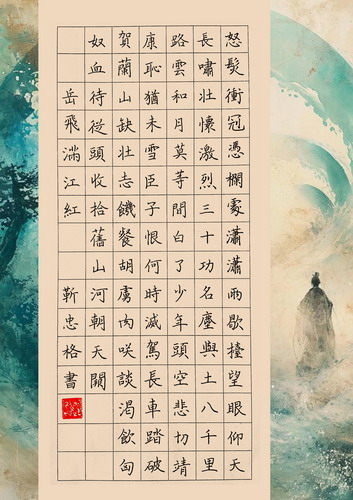 怒髮衝冠憑欄處瀟瀟雨歇擡望眼仰天
長嘯壯懷激烈三十功名塵與土八千里
路雲和月莫等間白了少年頭空悲切靖
康恥猶未雪臣子恨何時滅駕長車踏破
賀蘭山缺壯志饑餐胡虜肉咲談渴飲匈
奴血待從頭收拾舊山河朝天闕
岳飛滿江紅 靳忠格書